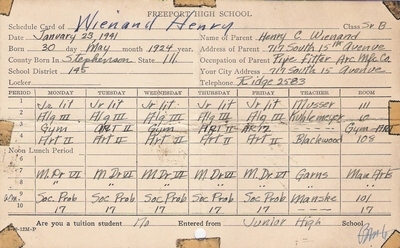 FREEPORT HIGH SCHOOL
Schedule Card of Wienand Henry Class Sr B
Date January 23, 1941 Name of Parent Henry C. Wienand
Born 30 day May month 1924 year. Address of Parent 717 South 15th Avenue
County Born In Stephenson State Ill. Occupation of Parent Pipe Fitter Arc Mfg. Co.
School District 145 Your City Address 717 South 15 Avenue
Locker Telephone Ridge 2583
PERIOD MONDAY TUESDAY WEDNESDAY THURSDAY FRIDAY TEACHER ROOM
1 Jr lit Jr lit Jr lit Jr lit Jr lit Musser 111
2 Alg III Alg III Alg III Alg III Alg III Kuhlemeyer
3 Gym ART II Gym ART II
4 Art II Art II Art II Art II Art II Blackwood 108
Noon Lunch Period
7 M. Dr VI M. Dr VI M. Dr VI M. Dr VI M. Dr VI Garns Man. Arts
8 " " " " " " "
9 Soc. Prob Soc Prob Soc. Prob Soc. Prob Soc. Prob Manske 101
10 17 17 17 17 17 17
Are you a tuition student No Entered from Junior High School